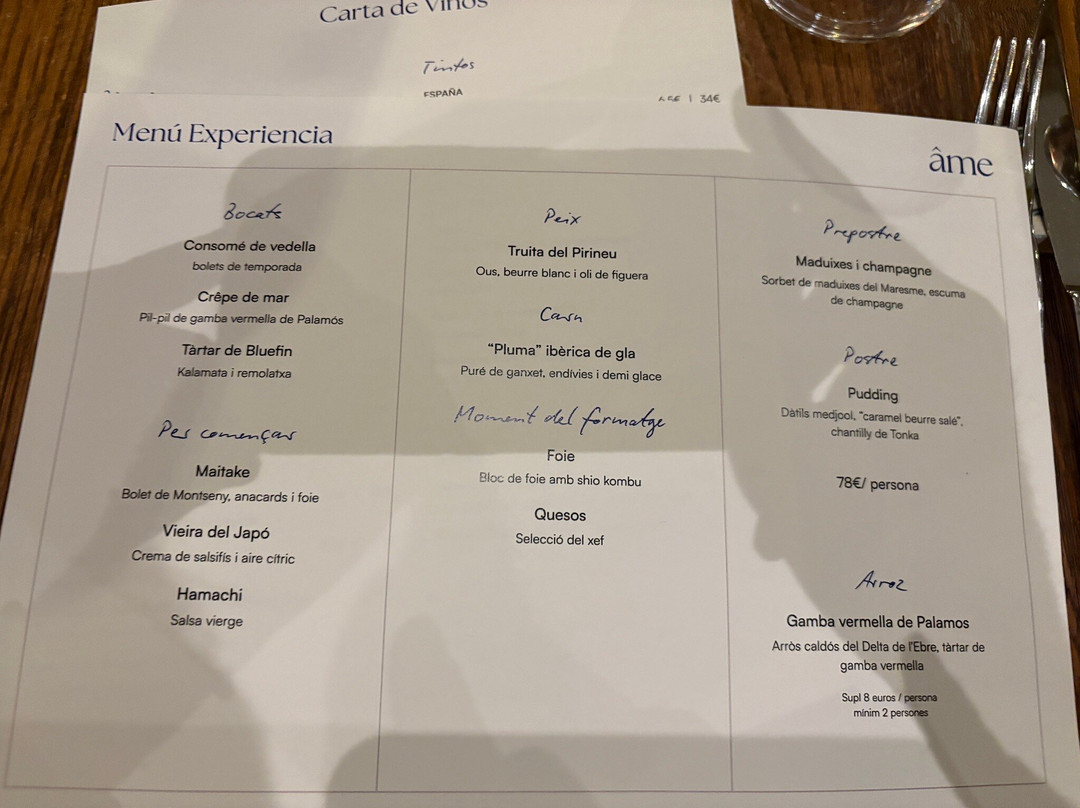 Carta de Vinos
Tintos
ESPAÑA
34€
Menú Experiencia
âme
Bocats
Consomé de vedella
bolets de temporada
Crêpe de mar
Pil-pil de gamba vermella de Palamós
Tàrtar de Bluefin
Kalamata i remolatxa
Per començar
Maitake
Bolet de Montseny, anacards i foie
Vieira del Japó
Crema de salsifís i aire cítric
Hamachi
Salsa vierge
Peix
Truita del Pirineu
Ous, beurre blanc i oli de figuera
Carn
“Pluma” ibèrica de gla
Puré de ganxet, endívies i demi glace
Moment del formatge
Foie
Bloc de foie amb shio kombu
Quesos
Selecció del xef
Prepostre
Maduixes i champagne
Sorbet de maduixes del Maresme, escuma
de champagne
Postre
Pudding
Dàtils medjool, “caramel beurre salé”,
chantilly de Tonka
78€/ persona
Arroz
Gamba vermella de Palamos
Arròs caldós del Delta de l'Ebre, tàrtar de
gamba vermella
Supl 8 euros / persona
mínim 2 persones